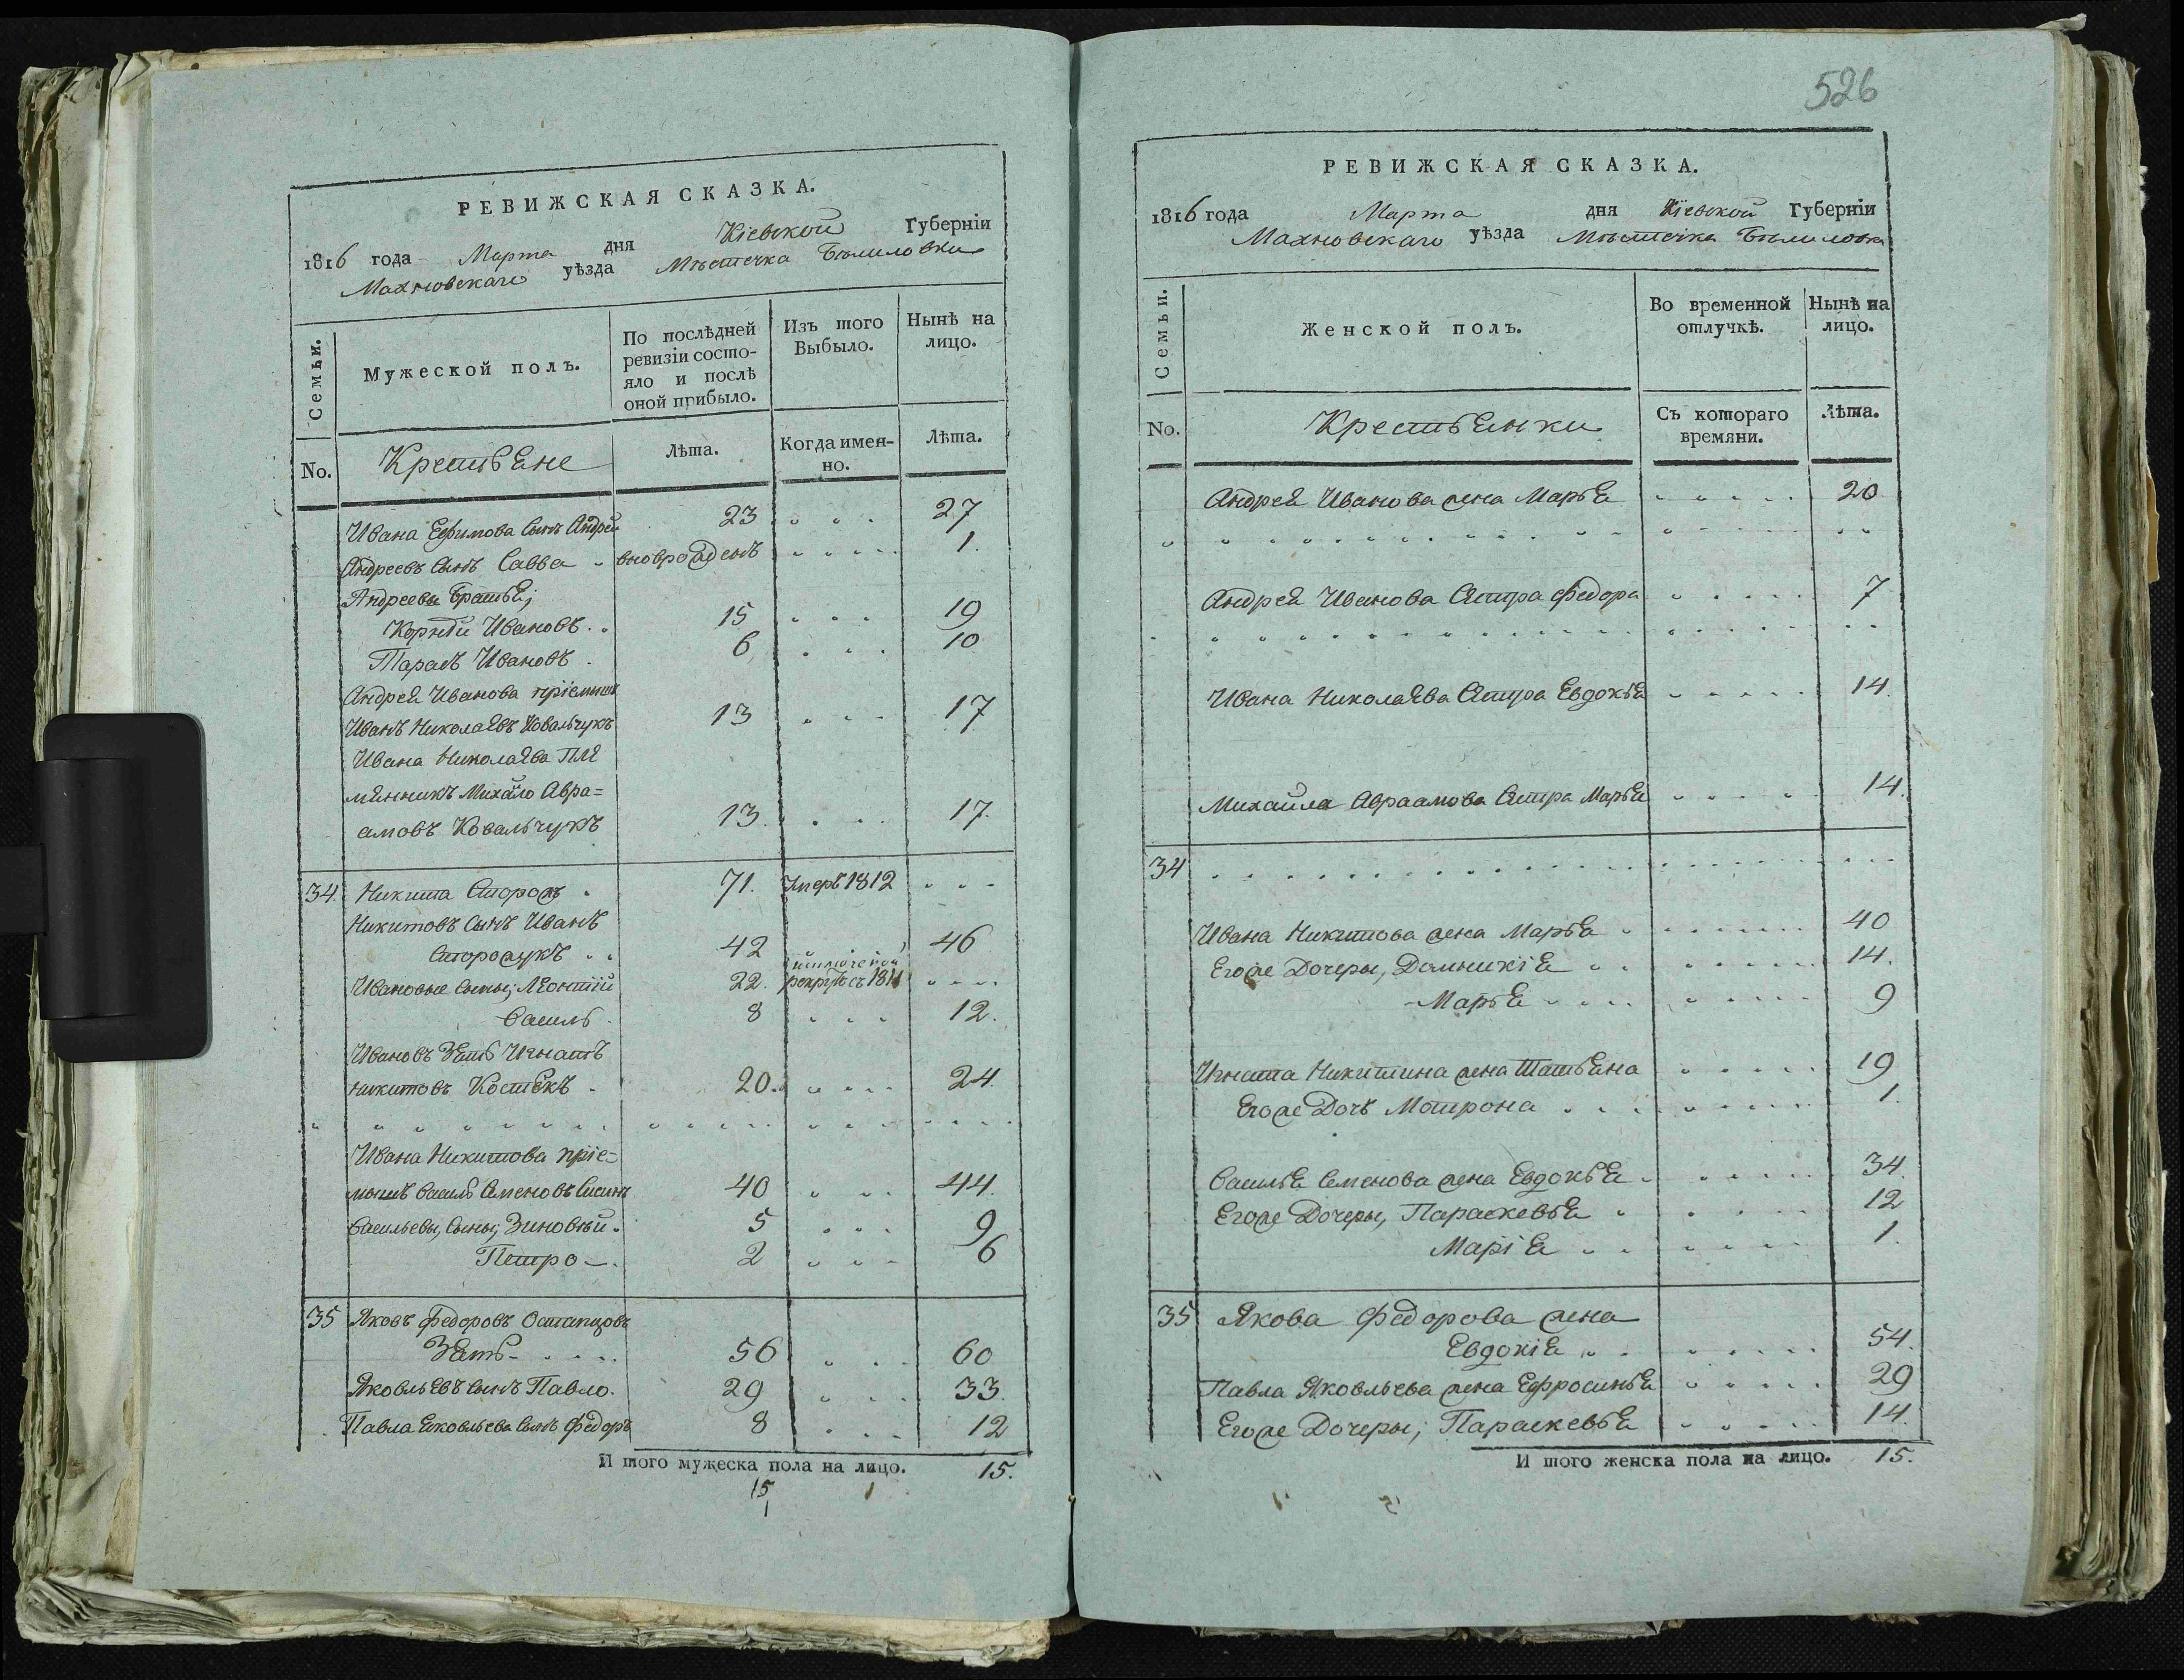 РЕВИЖСКАЯ СКАЗКА.
1816 года Марта дня Кіевской Губерніи
Махновскаго уѣзда Мѣстечка Бѣлиловки
Семьи.
Мужеской полъ.
По послѣдней ревизіи состо-
яло и послѣ оной прибыло.
Изъ того Выбыло.
Нынѣ на лицо.
No.
Крестьяне
Лѣта.
Когда имен-
но.
Лѣта.
Ивана Ефимова Сынъ Андрей 23 27
Андреевъ Сынъ Савва вноврожденъ 1.
Андреевы Братья;
Корнѣй Ивановъ 15 19
Тарасъ Ивановъ 6 10
Андрея Иванова пріемышъ
Иванъ Николаевъ Ковальчукъ 13 17
Ивана Николаева Пле
мянникъ Михайло Авра=
амовъ Ковальчукъ 13. 17.
34. Никита Сторожъ 71. Умеръ 1812
Никитовъ Сынъ Иванъ
Сторожукъ 42 46
Ивановые Сыны; Леонтій 22. рекрутъ съ 1811
Василь 8 12.
Ивановъ Зять Игнатъ
Никитовъ Костюкъ 20. 24.
Ивана Никитова пріе=
мышъ Василь Семеновъ 40 44.
Васильевы, Сыны; Зиновѣй 5 9
Петро 2 6
35 Яковъ Федоровъ Остапцовъ
Зять 56 60
Яковльевъ Сынъ Павло. 29 33.
Павла Яковльева Сынъ Федоръ 8 12
И того мужеска пола на лицо. 15.
15
526
РЕВИЖСКАЯ СКАЗКА.
1816 года Марта дня Кіевской Губерніи
Махновскаго уѣзда Мѣстечка Бѣлиловка
Семьи.
Женской полъ.
Во временной отлучкѣ.
Нынѣ на лицо.
No.
Крестьянки
Съ котораго времяни.
Лѣта.
Андрея Иванова жена Марья 20
Андрея Иванова Сестра Федора 7
Ивана Николаева Сестра Евдокья 14.
Михайла Авраамова Сестра Марья 14.
34
Ивана Никитова жена Марья 40
Егоже Дочеры, Домникія 14.
Марья 9
Игната Никитина жена Татьяна 19
Егоже Дочь Мотрона 1.
Василья Семенова жена Евдокья 34.
Егоже Дочеры, Параскевья 12
Марія 1.
35 Якова Федорова жена
Евдокія 54.
Павла Яковльева жена Ефросинья 29
Егоже Дочеры; Параскевья 14.
И того женска пола на лицо. 15.